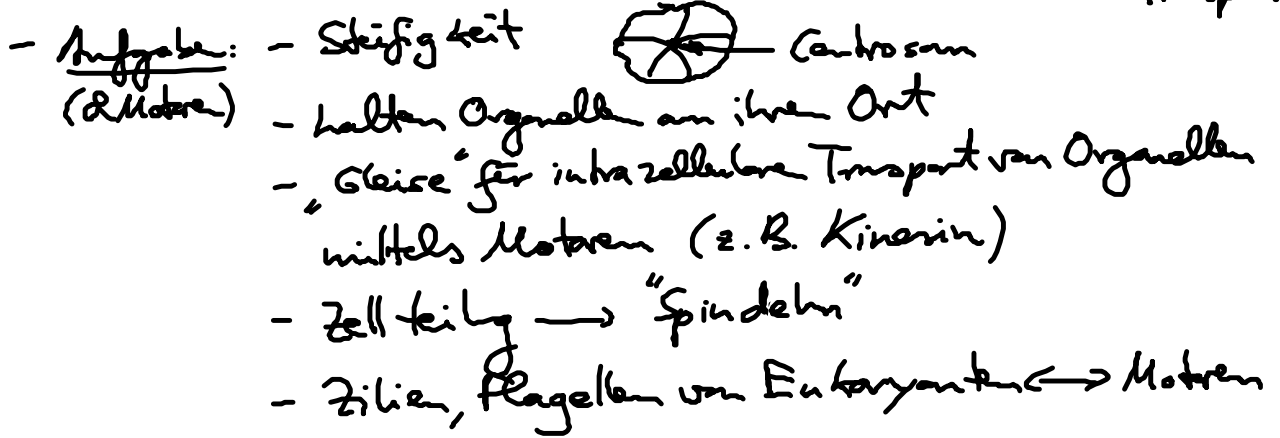 - Aufgaben: - Steifigkeit Centrosom
(& Motoren) - halten Organellen an ihren Ort
- „Gleise“ für intrazelluläre Transport von Organellen
mittels Motoren (z.B. Kinesin)
- Zellteilung → "Spindeln"
- Zilien, Flagellen von Eukaryonten ↔ Motoren